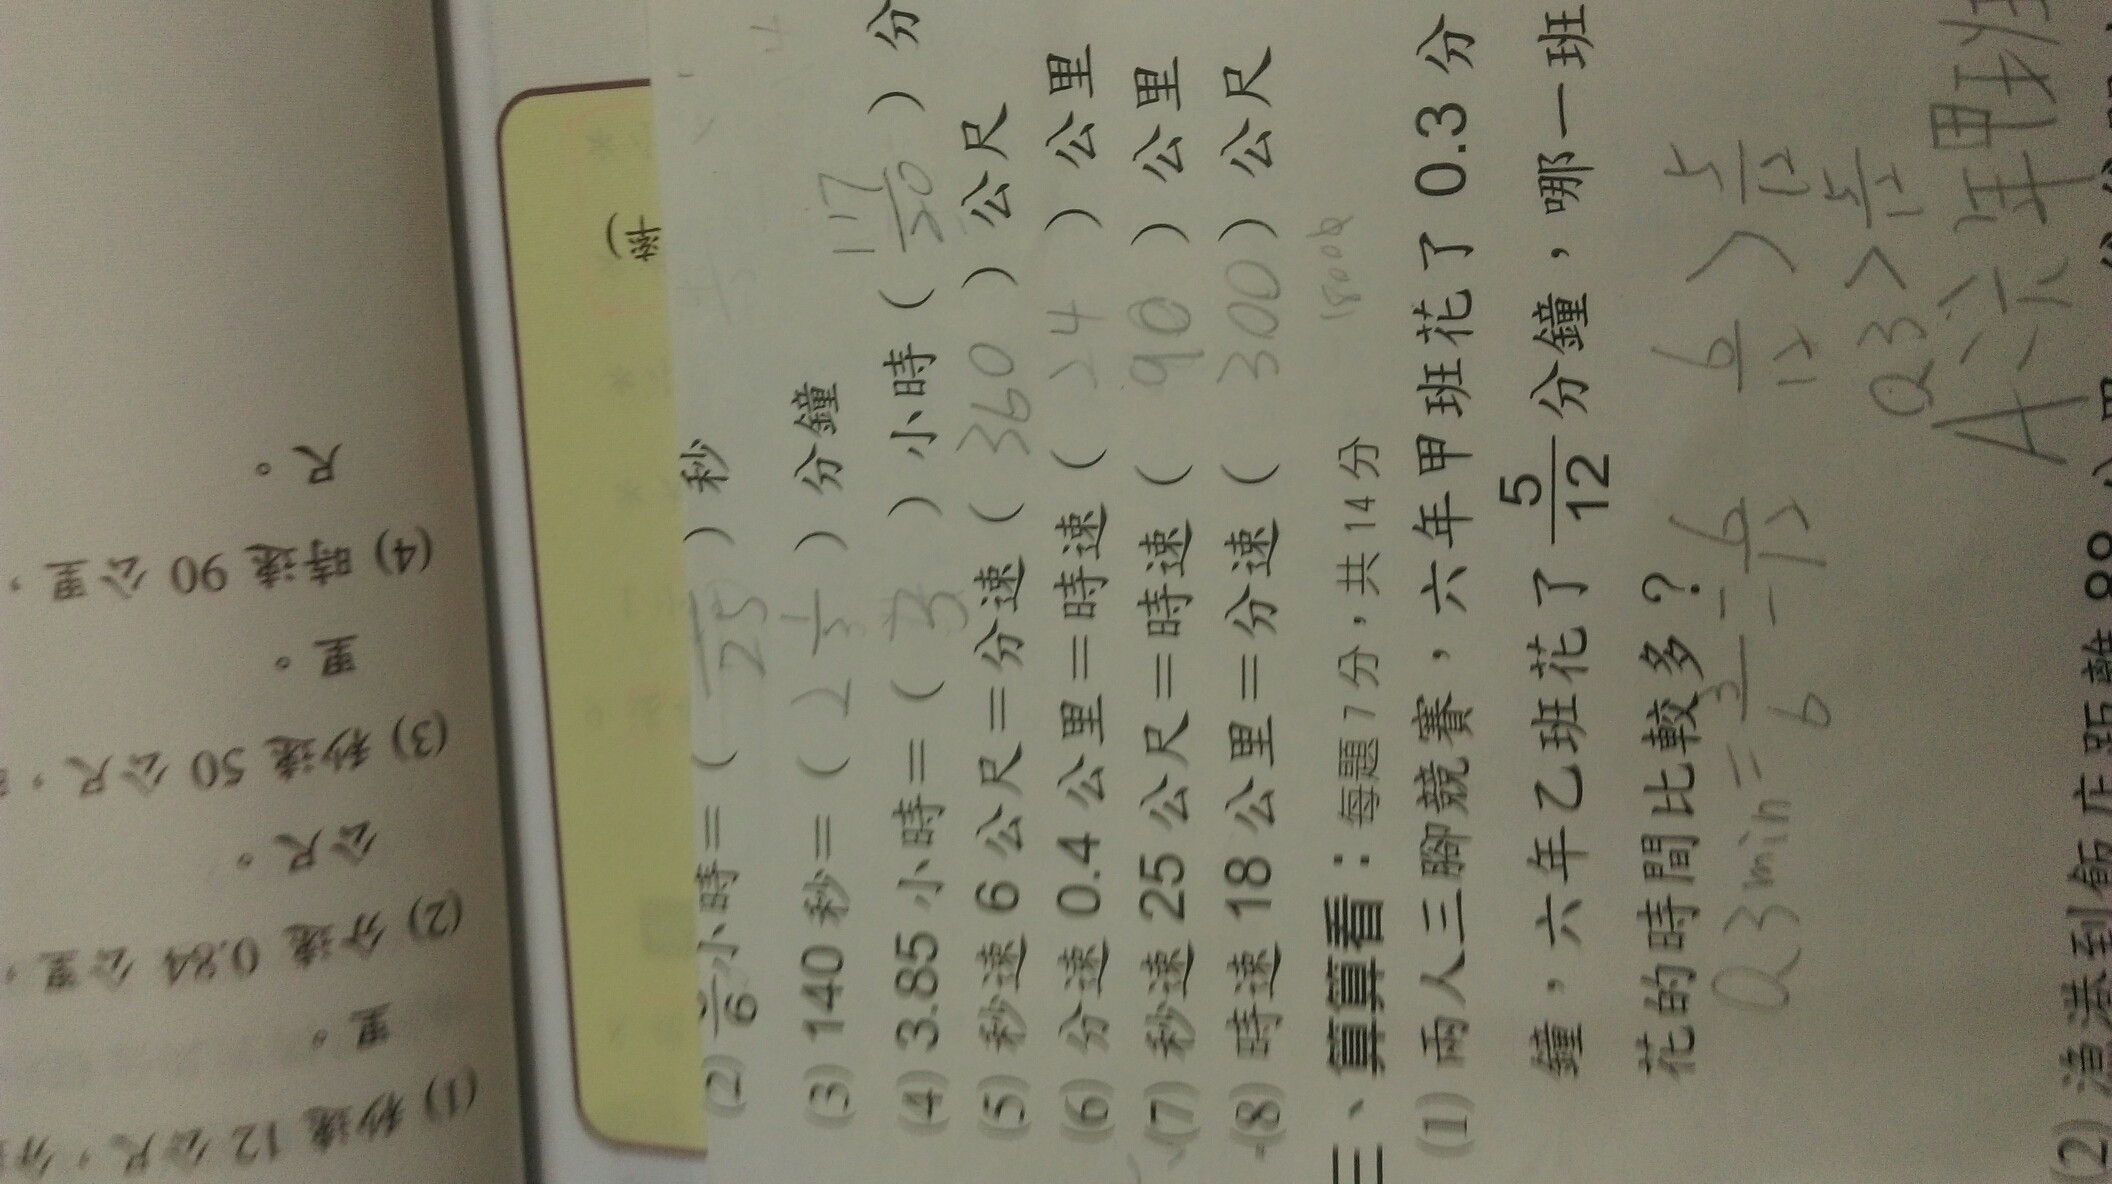 (2) 6 小時＝( 25 )秒
(3) 140 秒＝( 2 1/3 )分鐘
(4) 3.85 小時＝( 3 )小時( 17/20 )分
(5) 秒速 6 公尺＝分速( 360 )公尺
(6) 分速 0.4 公里＝時速( 24 )公里
(7) 秒速 25 公尺＝時速( 90 )公里
(8) 時速 18 公里＝分速( 300 )公尺
三、算算看：每題 7 分，共 14 分
(1) 兩人三腳競賽，六年甲班花了 0.3 分
鐘，六年乙班花了 5/12 分鐘，哪一班
花的時間比較多？
6/12 > 5/12
0.3 > 5/12
A 六年甲班
(2)
(1) 秒速 12 公尺，分
里。
(2) 分速 0.84 公里，
公尺。
(3) 秒速 50 公尺，
里。
(4) 時速 90 公里，
尺。